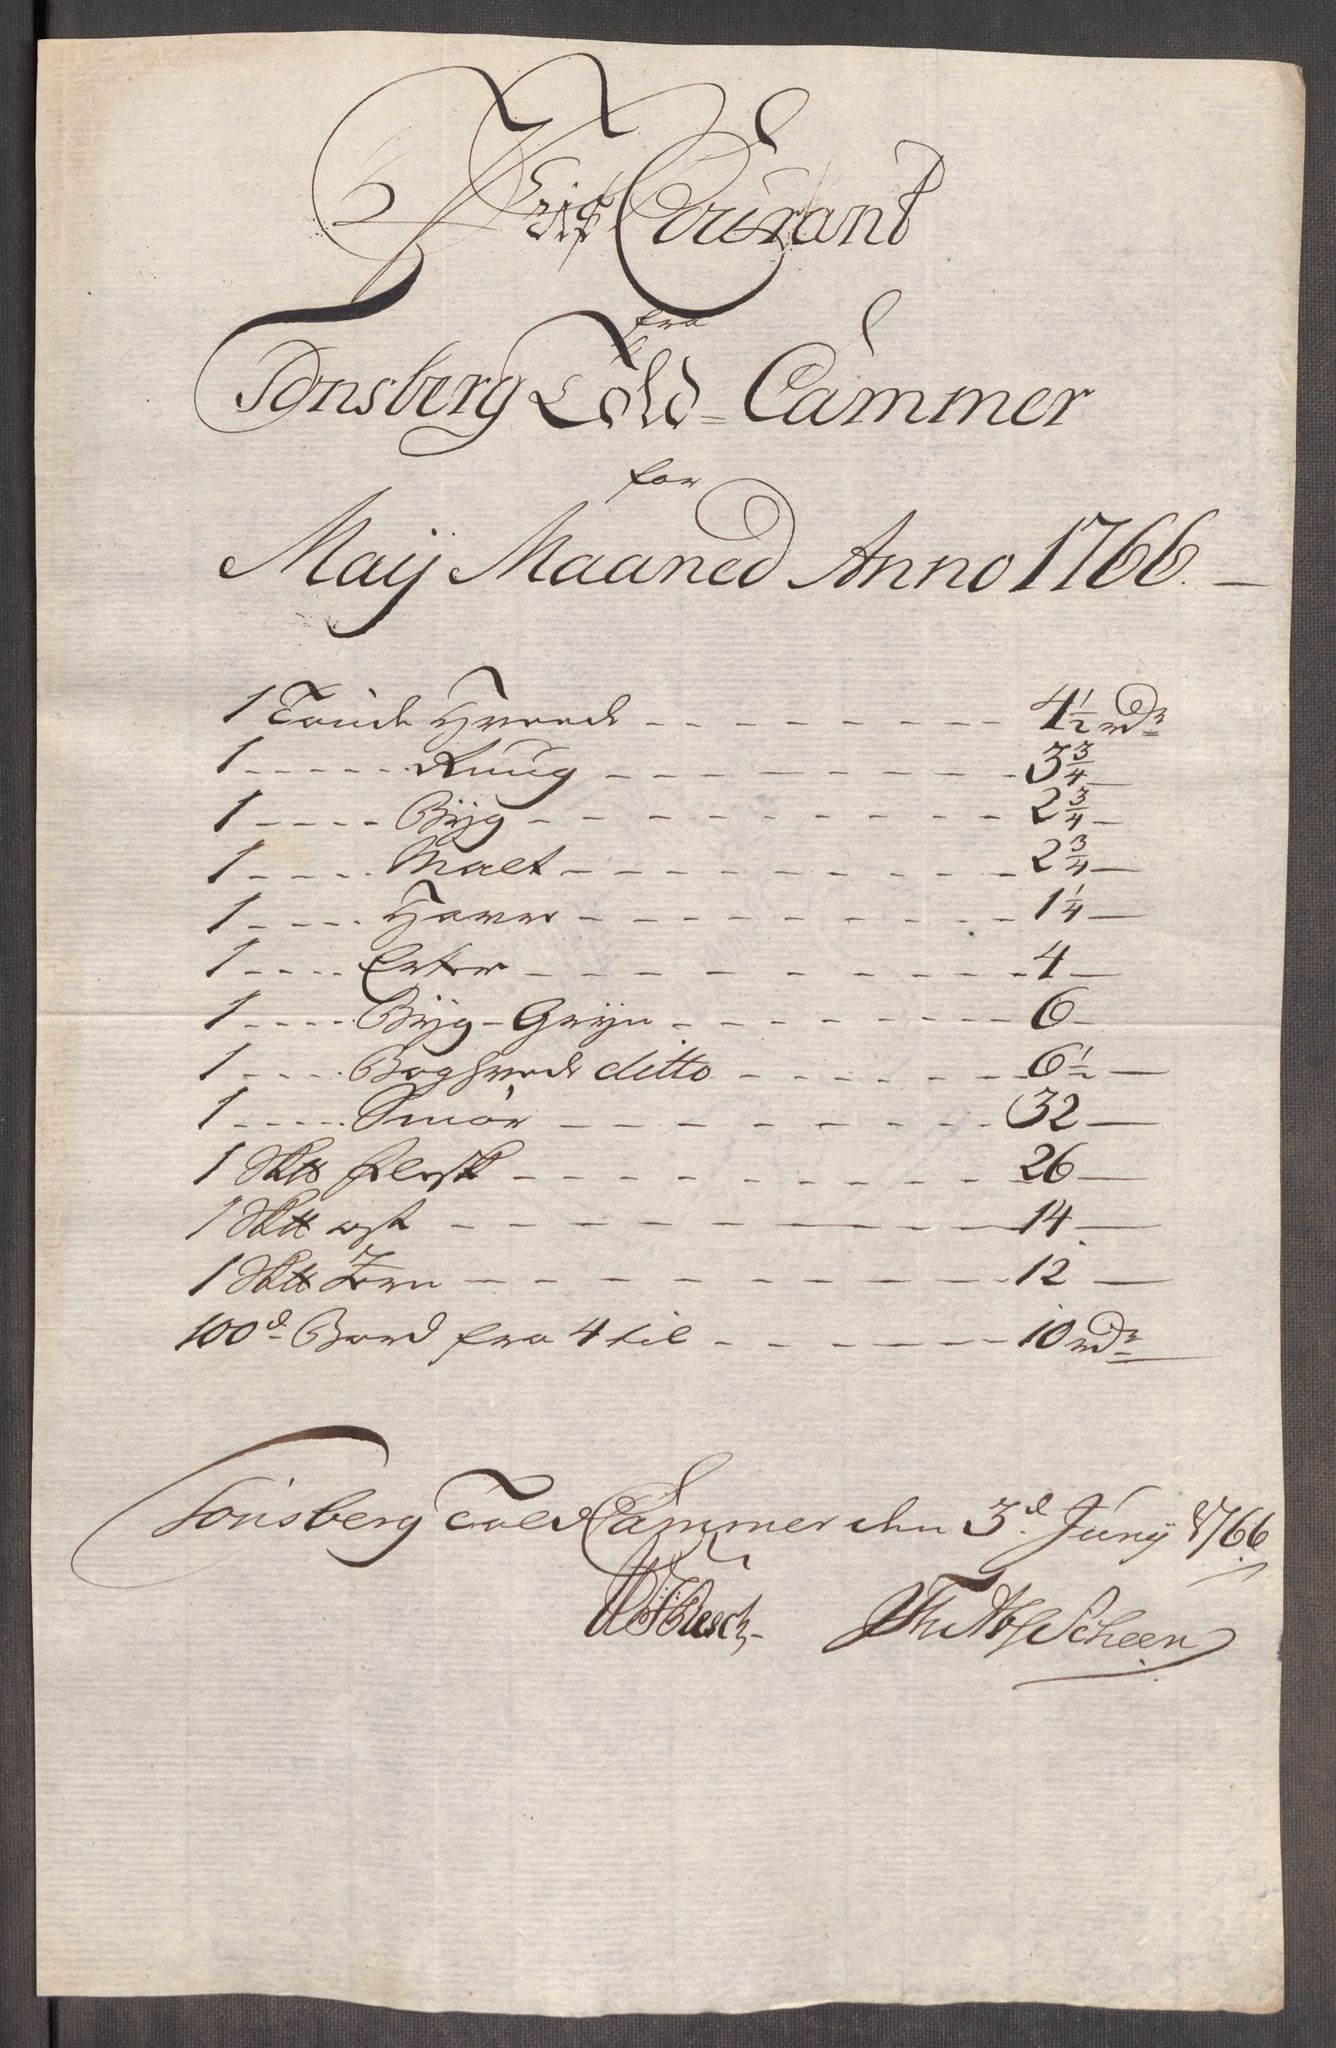 Priis Courant
fra
Tønsberg Told-Cammer
for
Maij Maaned Anno 1766.
1 Tønde Hveede - - - 4 1/2 rdr
1 - - - Ruug - - - 3 3/4
1 - - - Byg - - - 2 3/4
1 - - - Malt - - - 2 3/4
1 - - - Havre - - - 1 1/4
1 - - - Erter - - - 4
1 - - - Byg-Gryn - - - 6
1 - - - Boghvede ditto - - - 6 1/2
1 - - - Smør - - - 32
1 Sk℔ flesk - - - 26
1 Sk℔ ost - - - 14
1 Sk℔ Jern - - - 12
100d Bord fra 4 til - - - 10 rdr
Tønsberg Told Cammer den 3d Junij 1766.
Resch Scheen